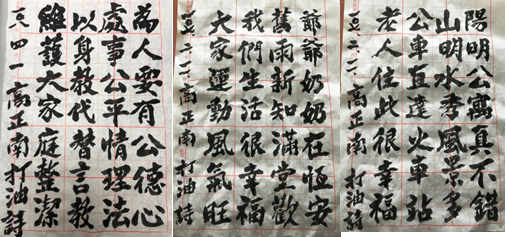 陽明公寓真不錯
山明水秀風景多
公車直達火車站
老人住此很幸福
高正南 打油詩
爺爺奶奶在恆安
舊雨新知滿堂歡
我們生活很幸福
大家運動風氣旺
高正南 打油詩
為人要有公德心
處事公平情理法
以身教代替言教
維護大家庭整潔
高正南 打油詩